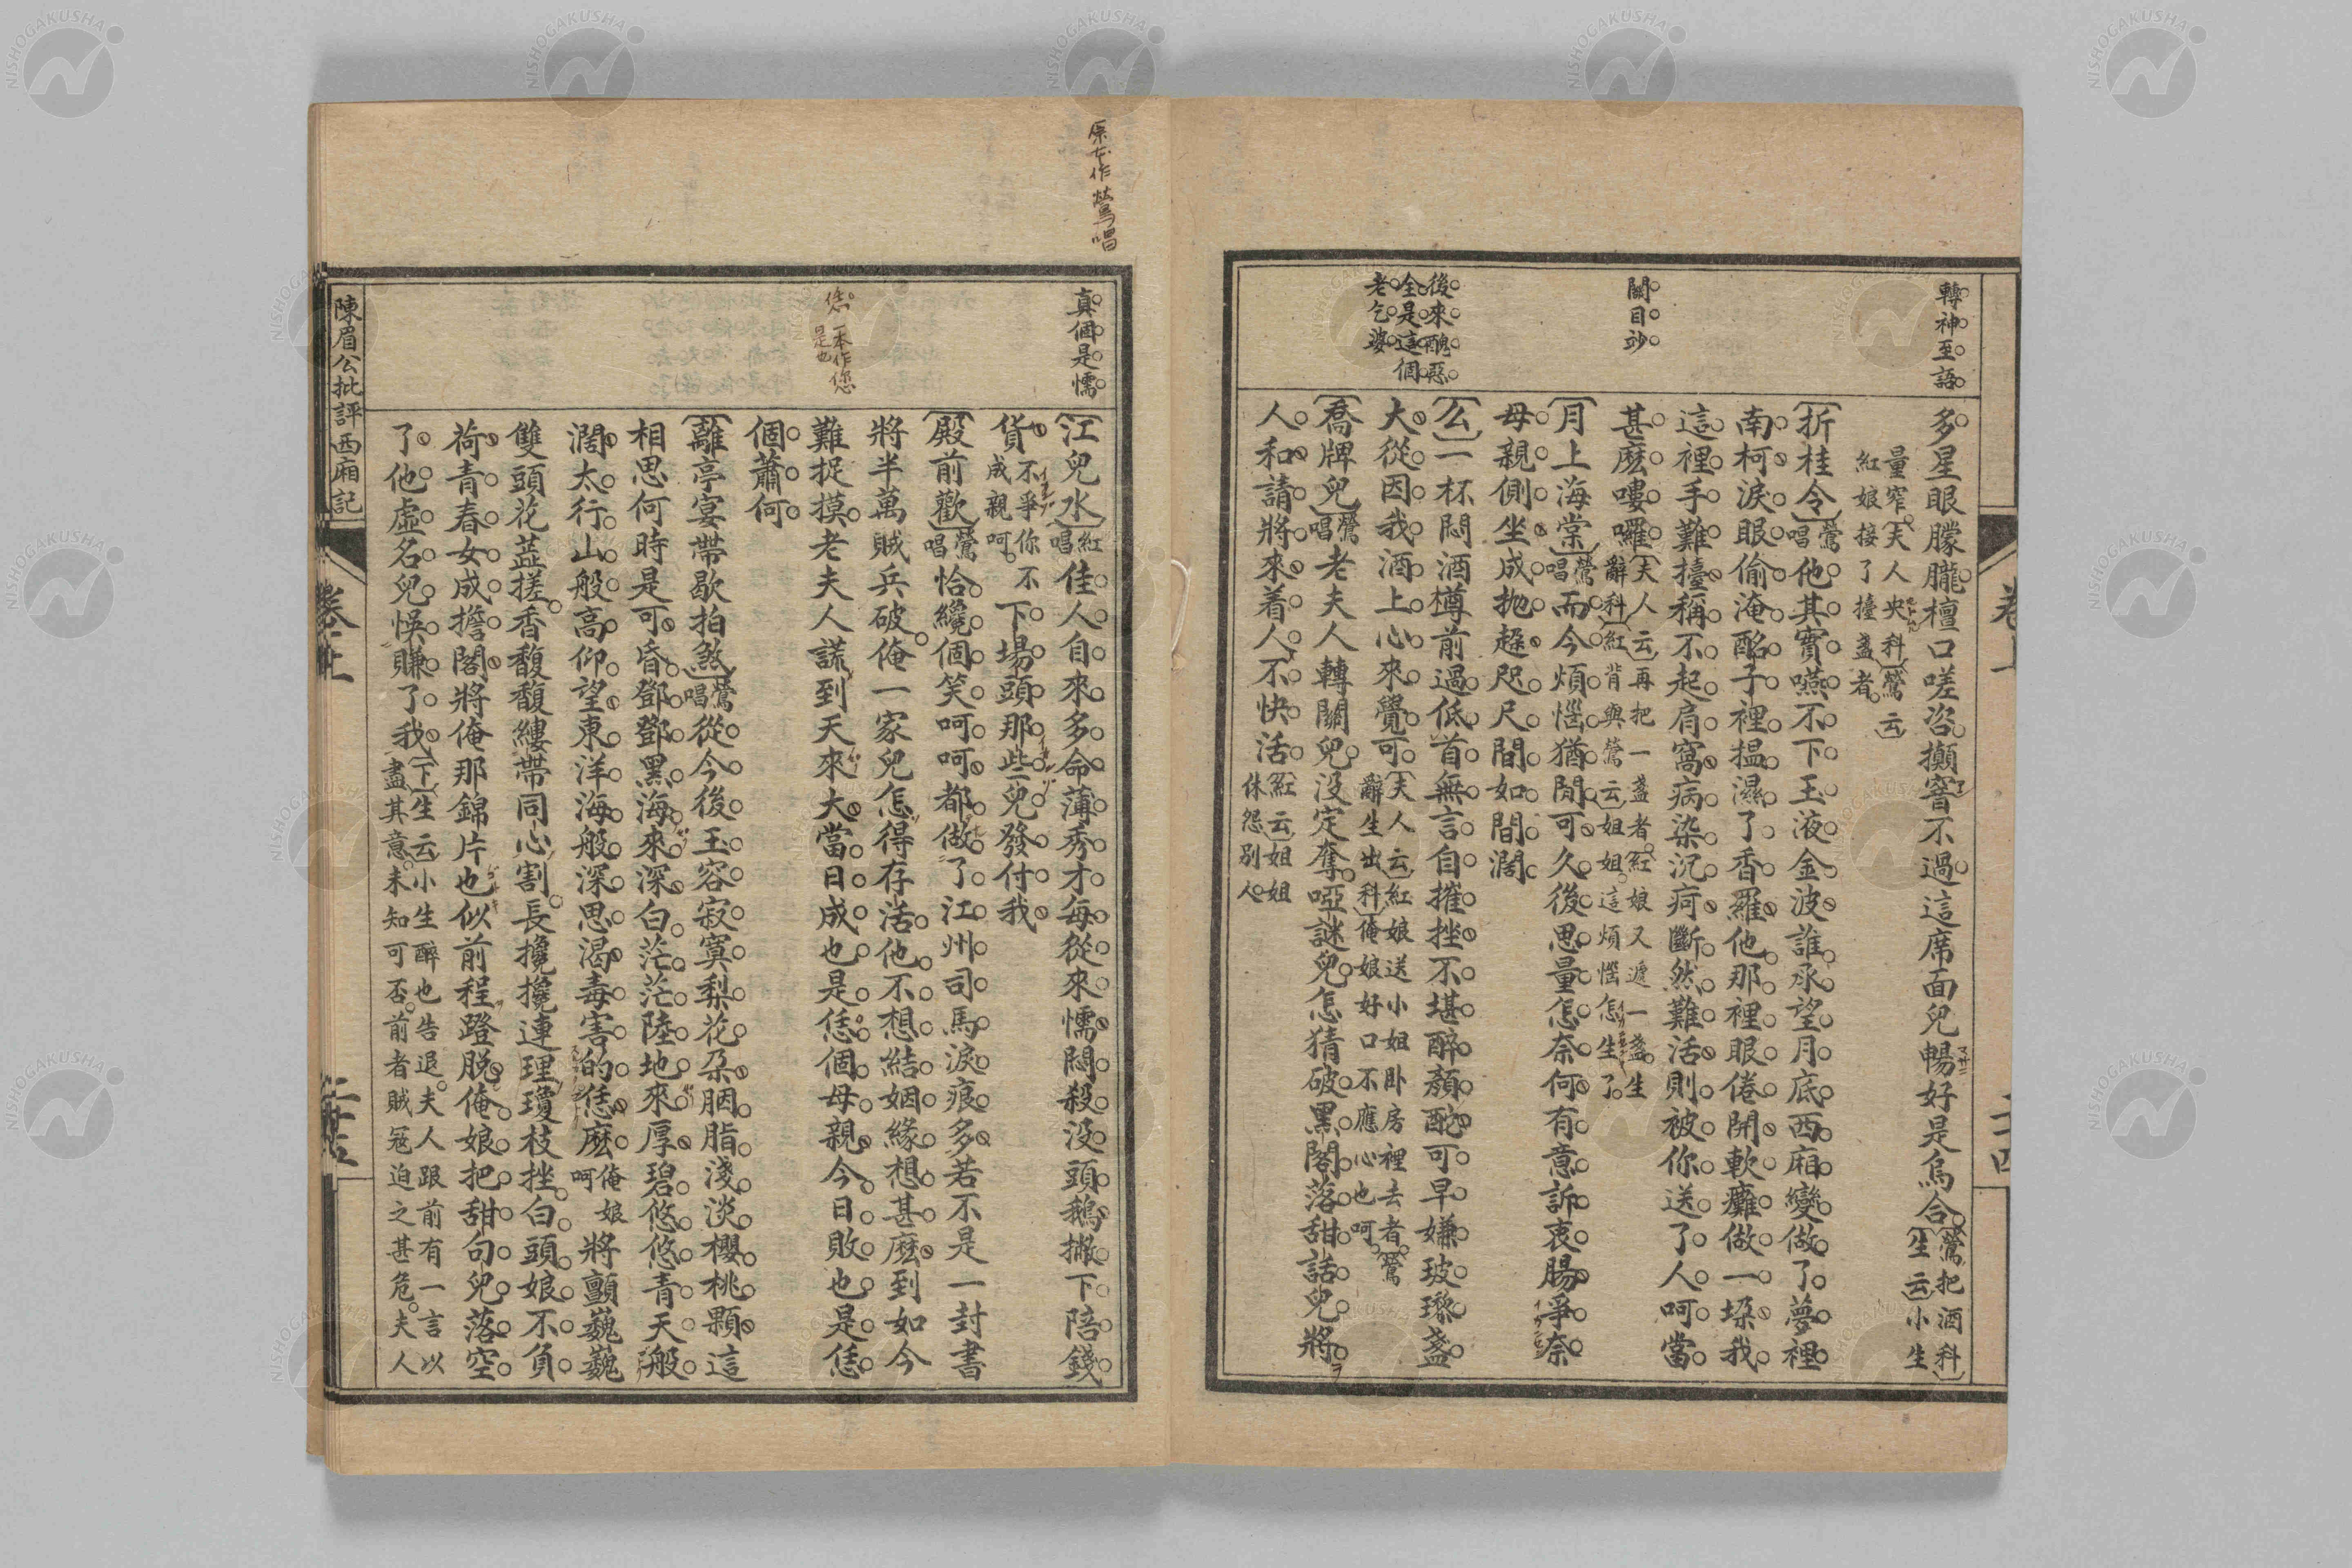 轉神至語
關目妙
後來醜惡
全是這個
老乞婆
多星眼朦朧檀口嗟咨攧窨不過這席面兒暢好是烏合〔鶯把酒科〕〔生云〕小生
量窄〔夫人央科〕〔鶯云〕紅娘接了擡盞者
〔折桂令〕〔鶯唱〕他其實嚥不下玉液金波誰承望月底西廂變做了夢裡
南柯淚眼偷淹酩子裡揾濕了香羅他那裡眼倦開軟癱做一垛我
這裡手難擡稱不起肩窩病染沉疴斷然難活則被你送了人呵當
甚麽嘍囉〔夫人云〕再把一盞者紅娘又遞一盞生辭科〔紅背與鶯云〕姐姐這煩惱怎生了
〔月上海棠〕〔鶯唱〕而今煩惱猶閒可久後思量怎奈何有意訴衷腸爭奈
母親側坐成抛趓咫尺間如間濶
〔么〕一杯悶酒樽前過低首無言自摧挫不堪醉顏酡可早嫌玻瓈盞
大從因我酒上心來覺可〔夫人云〕紅娘送小姐卧房裡去者〔鶯辭生出科〕俺娘好口不應心也呵
〔喬牌兒〕〔鶯唱〕老夫人轉關兒没定奪啞謎兒怎猜破黑閣落甜話兒將
人和請將來着人不快活〔紅云〕姐姐休怨别人
卷上
二十四
原本作鶯唱
真個是懦
恁 一本作您是也
〔江兒水〕〔紅唱〕佳人自來多命薄秀才每從來懦悶殺没頭鵝撇下陪錢
貨不爭你不成親呵下場頭那些兒發付我
〔殿前歡〕〔鶯唱〕恰纔個笑呵呵都做了江州司馬淚痕多若不是一封書
將半萬賊兵破俺一家兒怎得存活他不想結姻緣想甚麽到如今
難捉摸老夫人謊到天來大當日成也是恁個母親今日敗也是恁
個蕭何
〔離亭宴帶歇拍煞〕〔鶯唱〕從今後玉容寂寞梨花朶胭脂淺淡櫻桃顆這
相思何時是可昏鄧鄧黑海來深白茫茫陸地來厚碧悠悠青天般
濶太行山般高仰望東洋海般深思渴毒害的恁麽俺娘呵將顫巍巍
雙頭花蕋搓香馥馥縷帶同心割長攙攙連理瓊枝挫白頭娘不負
荷青春女成擔閣將俺那錦片也似前程蹬脱俺娘把甜句兒落空
了他虛名兒悞賺了我〔下〕〔生云〕小生醉也告退夫人跟前有一言以盡其意未知可否前者賊宼迫之甚危夫人
陳眉公批評西廂記
卷上